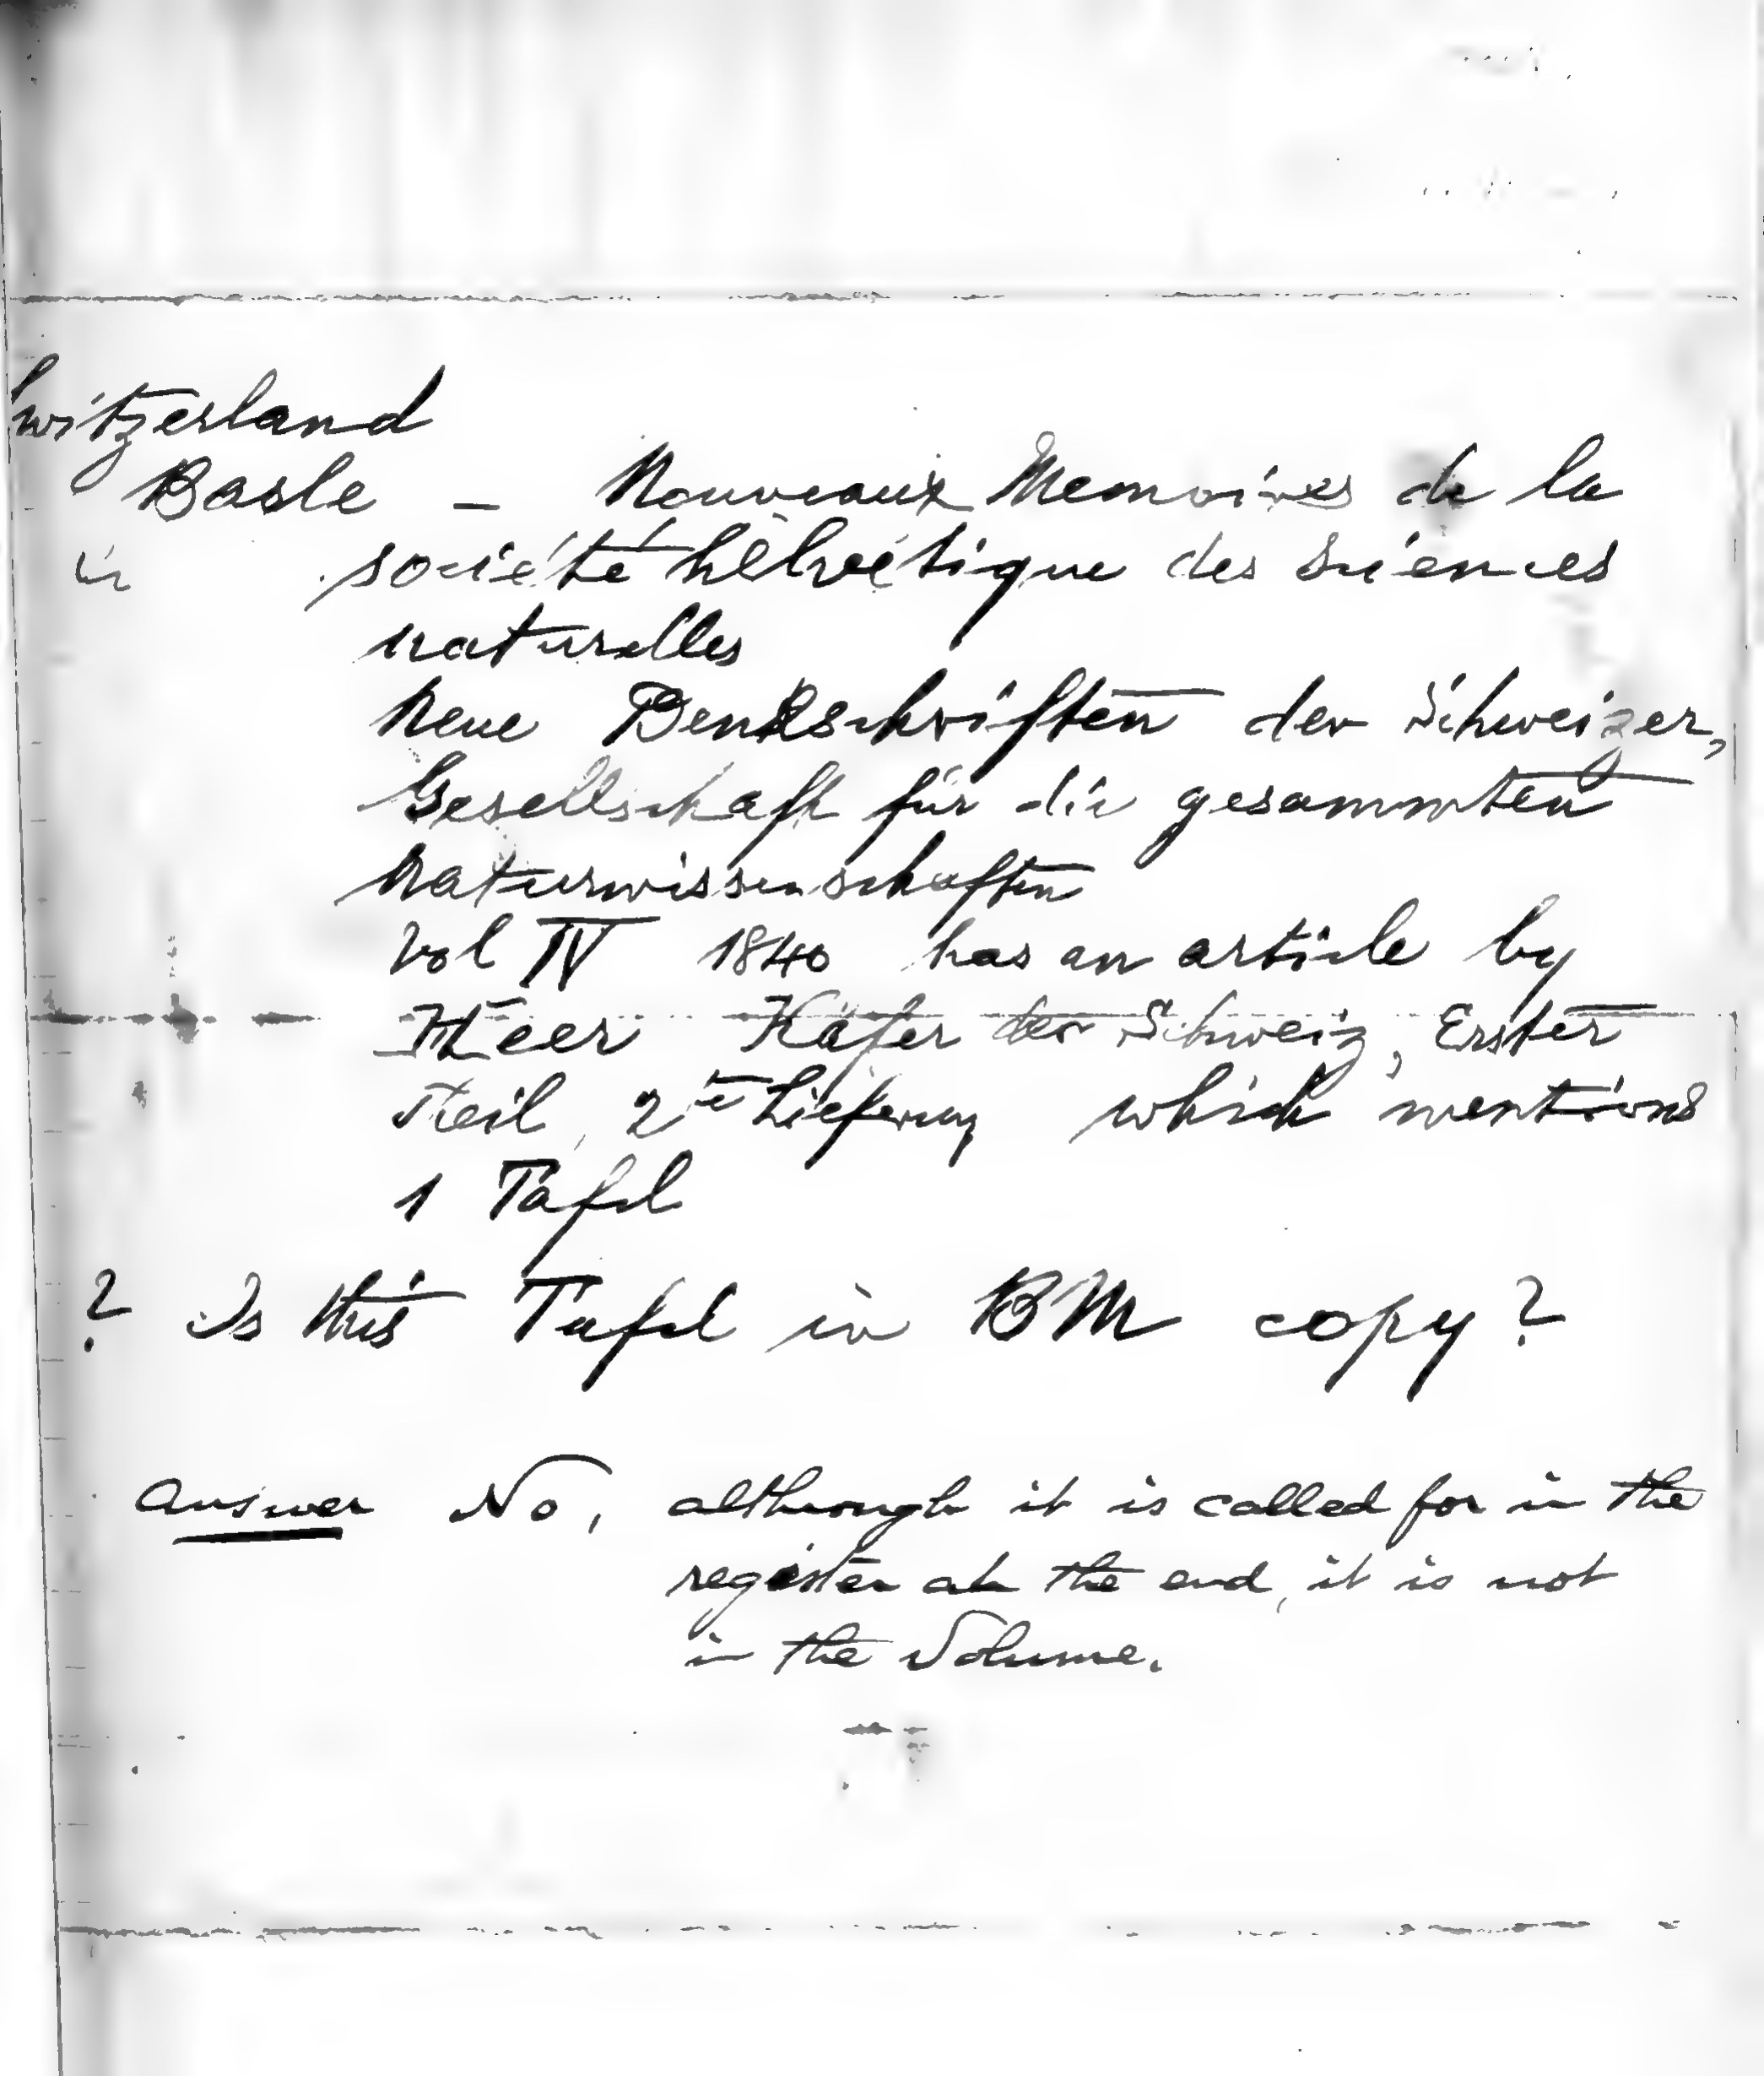 Switzerland
Basle – Nouveaux Memoires de la
société helvétique des Sciences
naturelles
Neue Denkschriften der Schweizer,
Gesellschaft für die gesammten
Naturwissenschaften
Vol IV 1840 has an article by
Heer Käfer der Schweiz, Erster
Teil, 2te Lieferung which mentions
1 Tafel
? Is this Tafel in BM copy?
Answer No, although it is called for in the
register at the end, it is not
in the Volume.